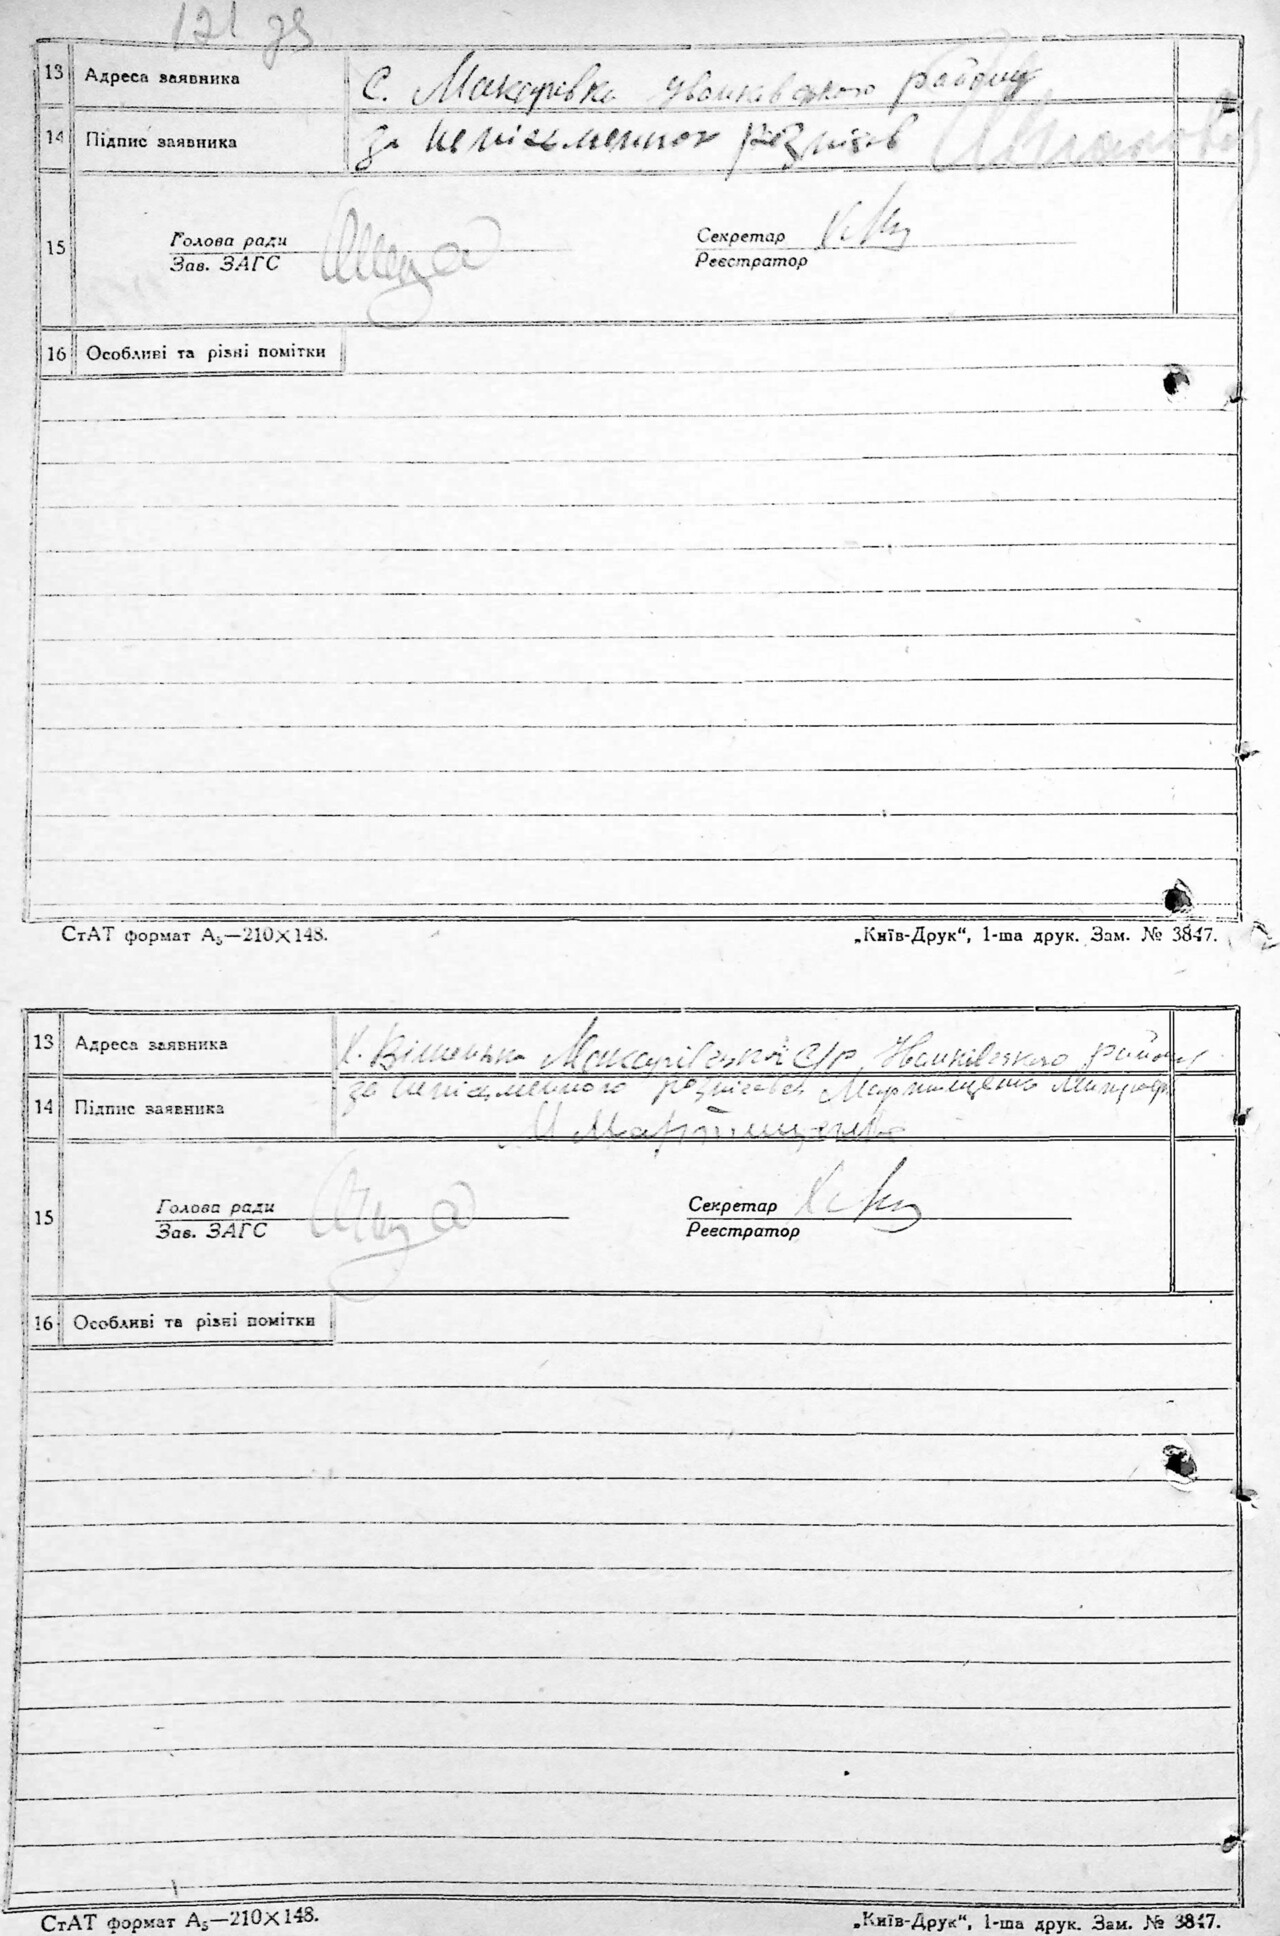 121 зв
13 Адреса заявника с. Макарівка Іванківського району
14 Підпис заявника за неписьменного розписався
15 Голова ради Секретар
Зав. ЗАГС Реєстратор
16 Особливі та різні помітки
СтАТ формат А₅—210×148. „Київ-Друк“, 1-ша друк. Зам. № 3847.
13 Адреса заявника х. Макарівської с/р Іванківського району
14 Підпис заявника за неписьменного розписався Мартищенко
М Мартищенко
15 Голова ради Секретар
Зав. ЗАГС Реєстратор
16 Особливі та різні помітки
СтАТ формат А₅—210×148. „Київ-Друк“, 1-ша друк. Зам. № 3847.